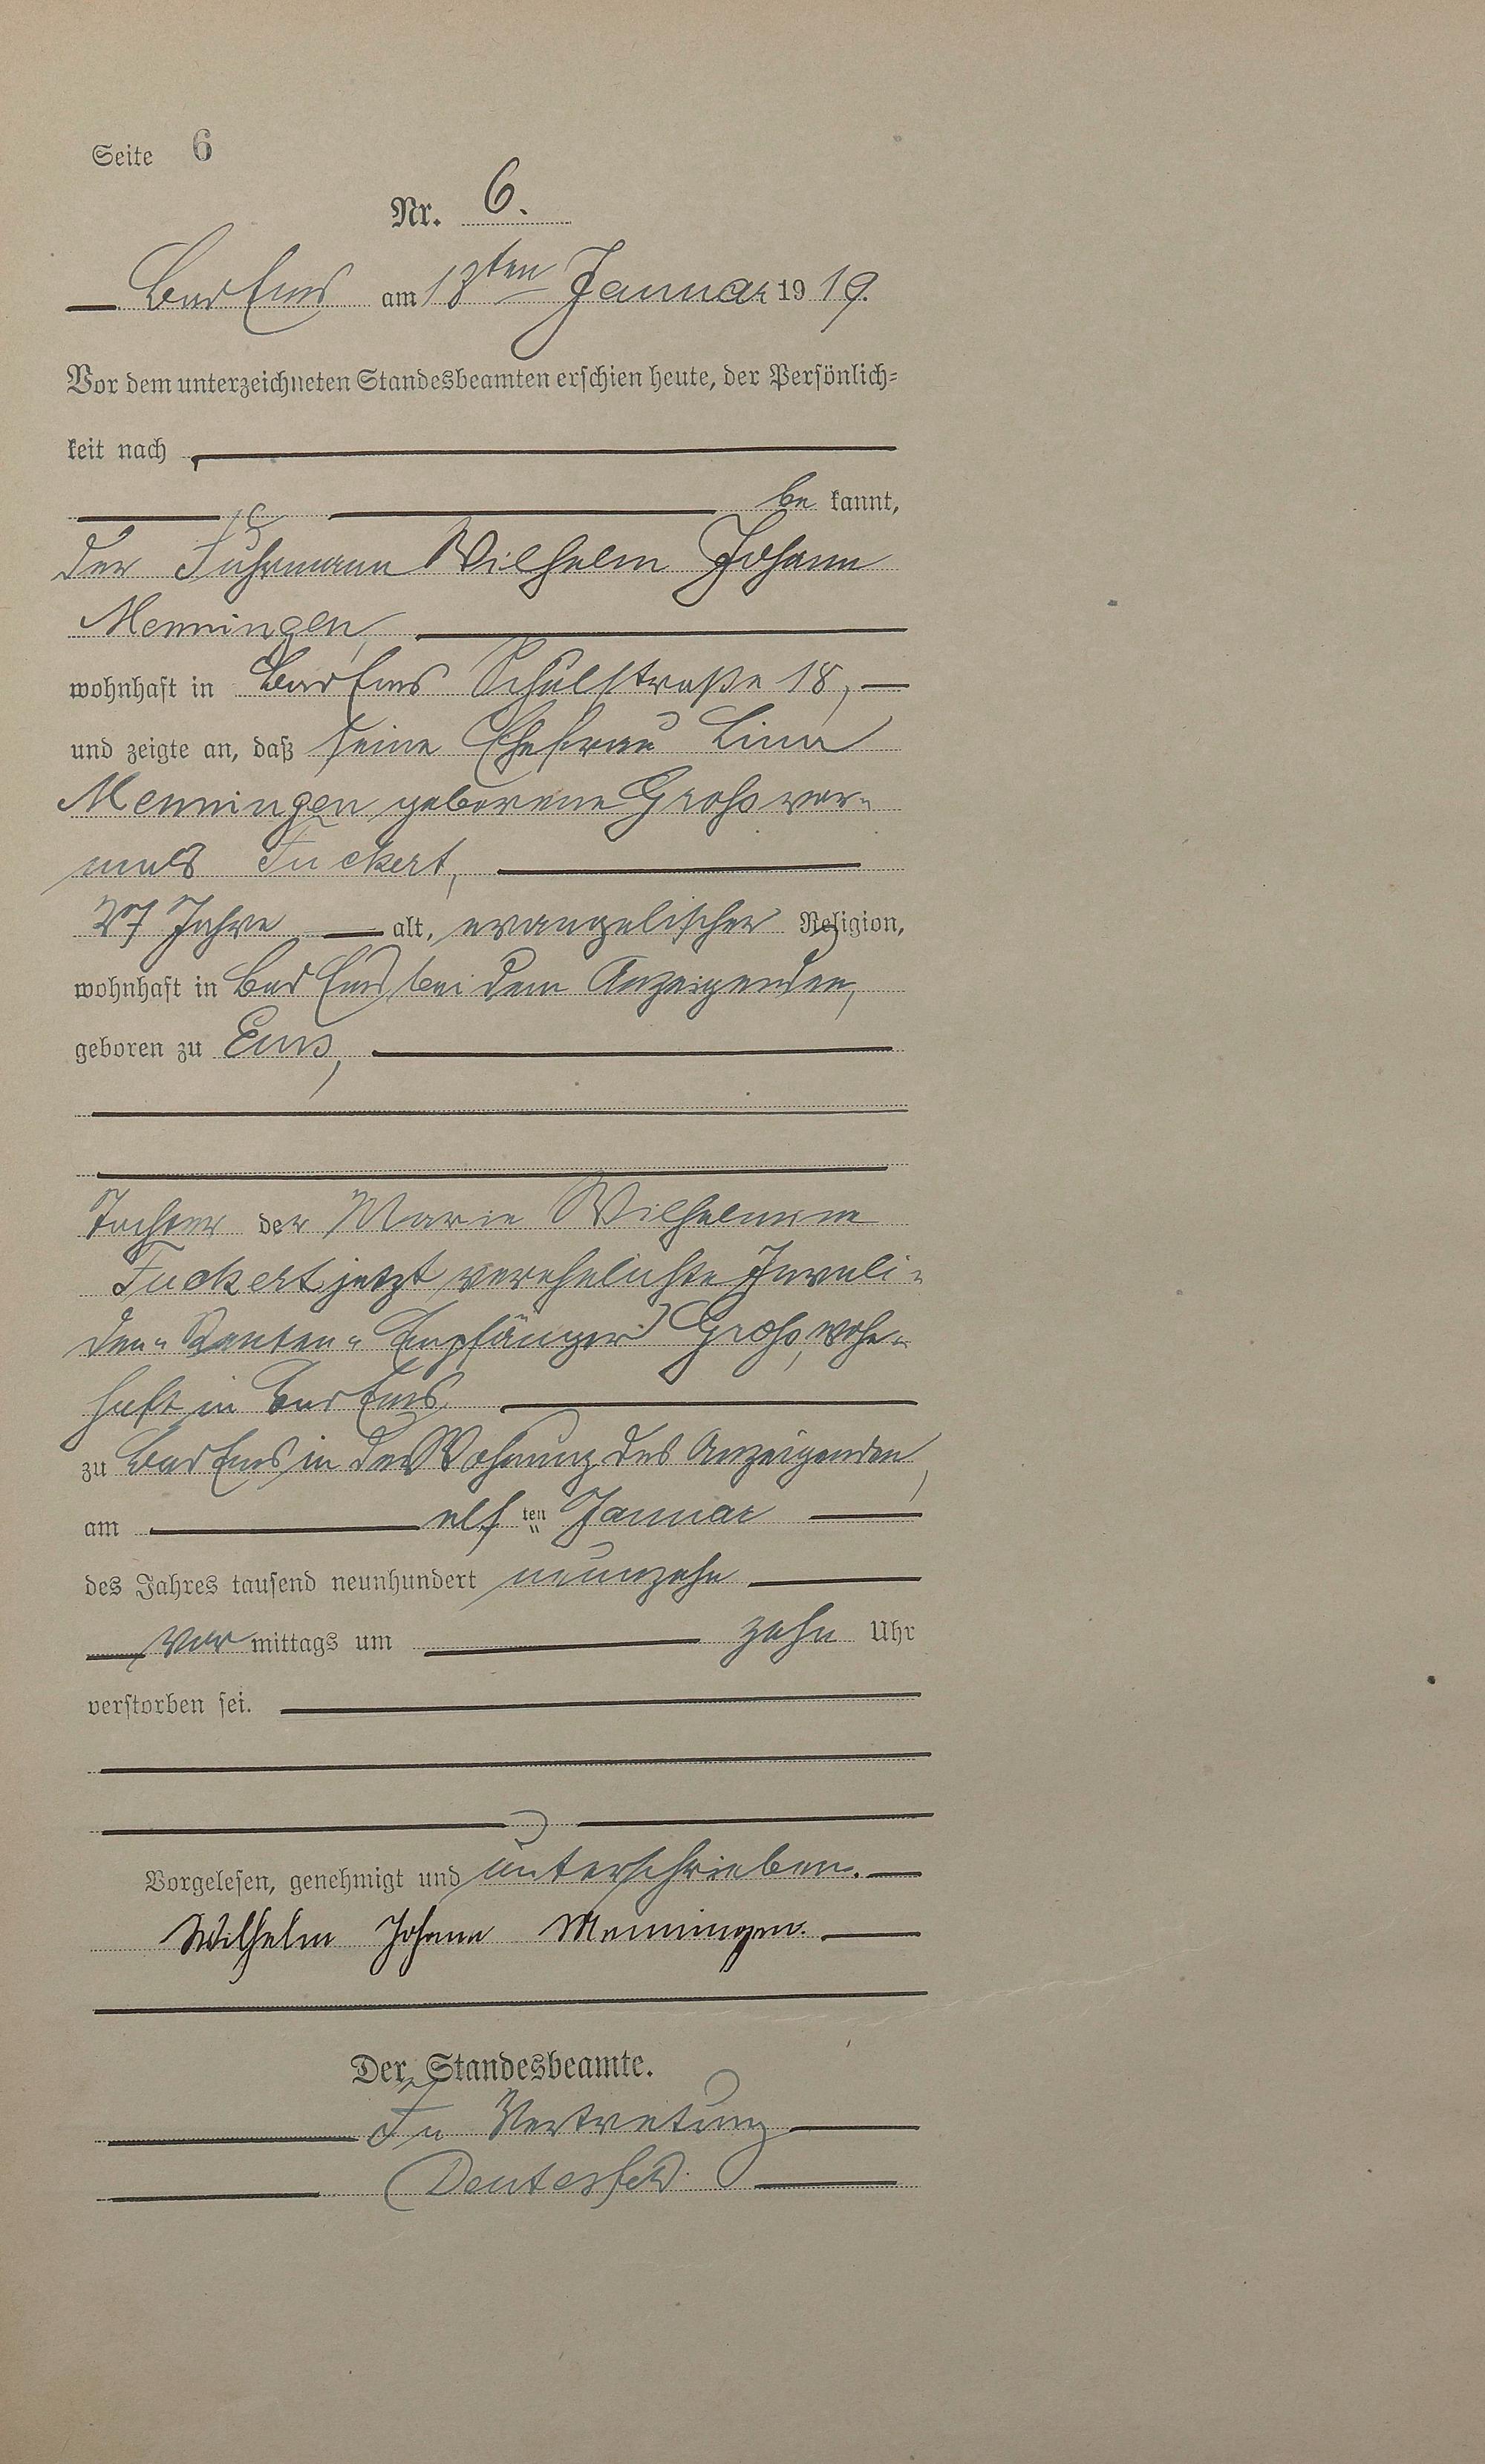 Seite 6
Nr. 6.
Bad Ems am 13ten Januar 1919.
Vor dem unterzeichneten Standesbeamten erschien heute, der Persönlich=
keit nach
be kannt,
der Fuhrmann Wilhelm Johann
Menningen,
wohnhaft in Bad Ems Schulstraße 18,
und zeigte an, daß seine Ehefrau Lina
Menningen geborene Groß vor-
mals Fuckert,
27 Jahre alt, evangelischer Religion,
wohnhaft in Bad Ems bei dem Anzeigenden,
geboren zu Ems,
Tochter der Marie Wilhelmine
Fuckert jetzt verehelichte Invali-
den-Renten-Empfänger Groß, wohn-
haft in Bad Ems
zu Bad Ems in der Wohnung des Anzeigenden,
am elf ten Januar
des Jahres tausend neunhundert neunzehn
vor mittags um zehn Uhr
verstorben sei.
Vorgelesen, genehmigt und unterschrieben.
Wilhelm Johann Menningen.
Der Standesbeamte.
In Vertretung